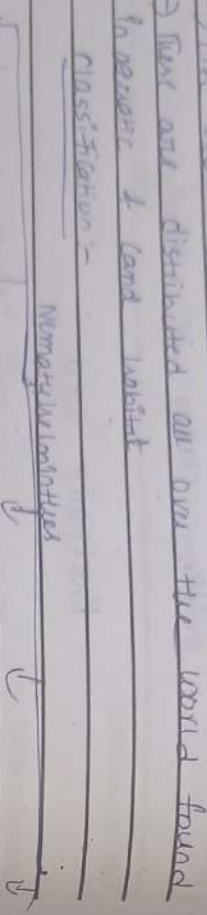 → These are distributed all over the world found
in aquatic & land habitat
Classification :-
Nemathelminthes